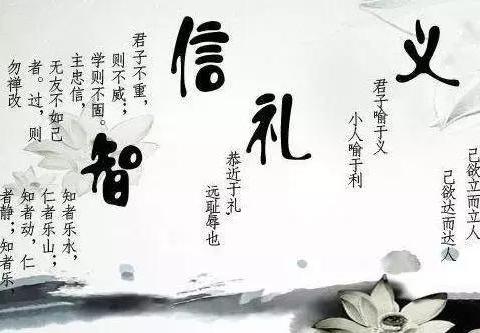 义
己欲立而立人
己欲达而达人
君子喻于义
小人喻于利
礼
恭近于礼
远耻辱也
信
君子不重,
则不威;
学则不固。
主忠信,
无友不如己
者。过,则
勿禅改
智
知者乐水,
仁者乐山;
知者动,仁
者静;知者乐,